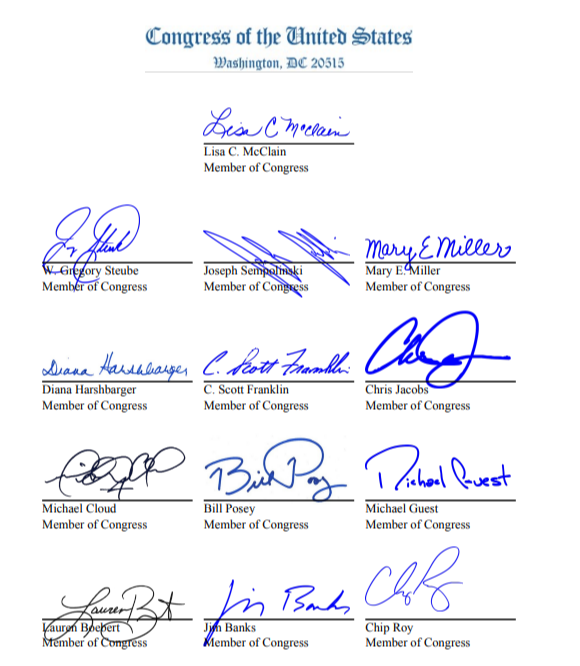 Congress of the United States
Washington, DC 20515
Lisa C McClain
Lisa C. McClain
Member of Congress
W. Gregory Steube
Joseph Sempolinski
Mary E Miller
Mary E. Miller
Member of Congress
Member of Congress
Member of Congress
Diana Harshbarger
C. Scott Franklin
Diana Harshbarger
C. Scott Franklin
Chris Jacobs
Member of Congress
Member of Congress
Member of Congress
Bill Posey
Michael Guest
Michael Cloud
Bill Posey
Michael Guest
Member of Congress
Member of Congress
Member of Congress
Lauren
Jim Banks
Chip Roy
Lauren Boebert
Jim Banks
Chip Roy
Member of Congress
Member of Congress
Member of Congress